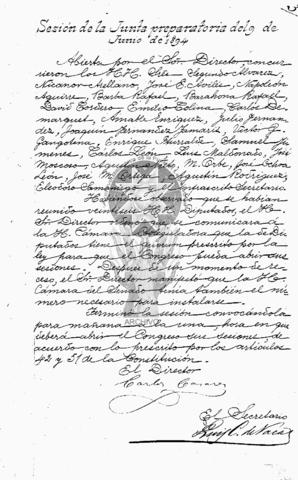 Sesión de la Junta preparatoria del 9 de
Junio de 1894
Abierta por el Sor Director concu-
rieron los H.H. Sres Segundo Alvarez,
Nicanor Arellano, José E. Avilés, Napoleón
Aguirre, Barba Rafael, Barahona Rafael,
David Cordero, Emilio Colina, Carlos De-
marquet, Amable Enríquez, Julio Fernán-
dez, Joaquín Fernández Jamarit, Víctor G.
Gangotena, Enrique Iturralde, Samuel Ja-
meres, Carlos Luis Maldonado,
Moscoso, M. Orbe, José Ochoa
León, José M. Ortega, Agustín Rodríguez,
Eleodoro Samaniego y el infrascrito Secretario.
Habiéndose observado que se habían
reunido veintiseis H.H. Diputados, el H.
Sr. Director ordenó que se comunicara a
la H. Cámara Colegisladora que la de Di-
putados tiene el quorum prescrito por la
ley para que el Congreso pueda abrir sus
sesiones. Después de un momento de re-
ceso, el Sr. Director manifestó que la H.
Cámara del Senado tenía también el nú-
mero necesario para instalarse.
Terminó la sesión convocándola
para mañana a la una, hora en que
deberá abrir el Congreso sus sesiones, de
acuerdo con lo prescrito por los artículos
42 y 51 de la Constitución.
ARCHIVO
El Director
Carlos Casares
El Secretario
Luis C. de Vaca